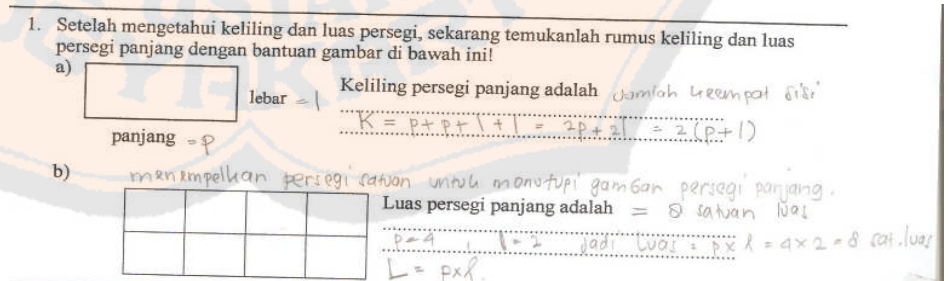 1. Setelah mengetahui keliling dan luas persegi, sekarang temukanlah rumus keliling dan luas
persegi panjang dengan bantuan gambar di bawah ini!
a)
lebar = l
panjang = p
Keliling persegi panjang adalah Jumlah keempat sisi
K = p + p + l + l = 2p + 2l = 2(p + l)
b) menempelkan persegi satuan untuk menutupi gambar persegi panjang.
Luas persegi panjang adalah = 8 satuan luas
p = 4 , l = 2 jadi luas = p x l = 4 x 2 = 8 sat.luas
L = p x l.